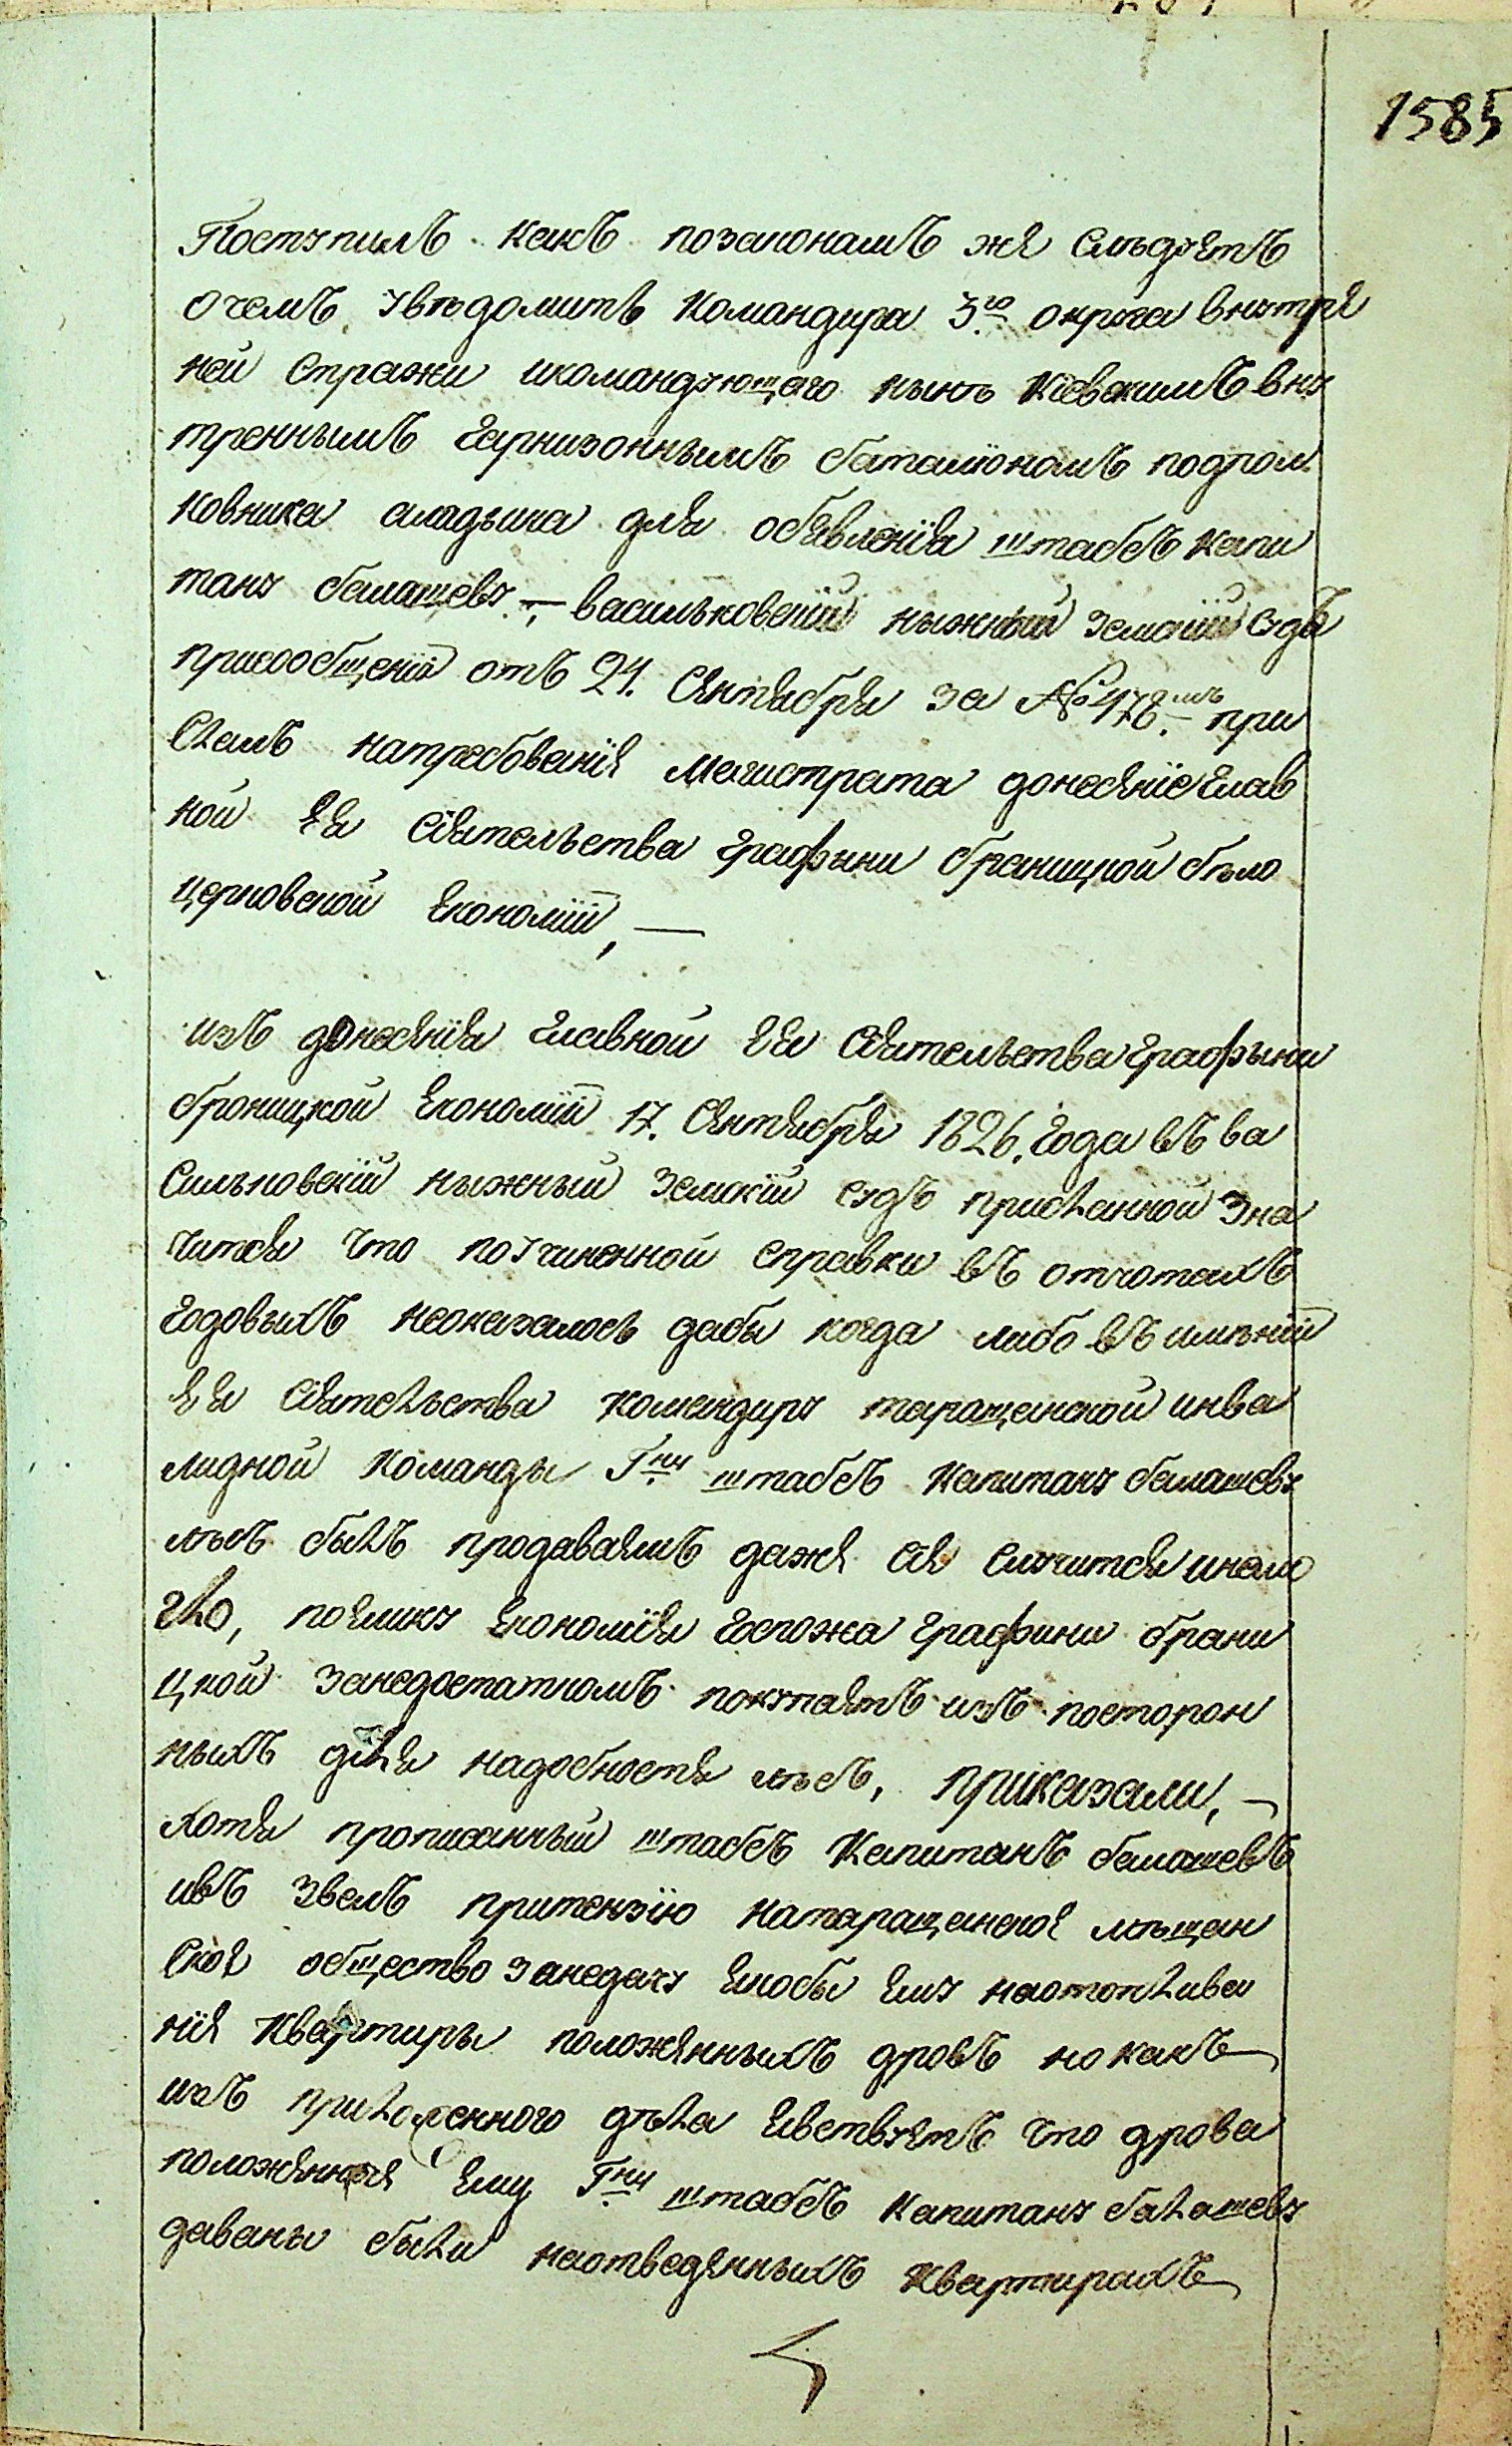 1585
Поступилъ какъ позаконамъ же слѣдуетъ
очемъ увѣдомить Командира 3го округа внутре
ней Стражи икомандующаго нынѣ Кіевскимъ вну
треннымъ гарнизоннымъ баталіономъ подпол
ковника аладьина для обявленія штабсъ капи
тану балашеву, — васильковскій нижній земскій судъ
присообщеніи отъ 24. Сентября за №478мъ при
слалъ натребованія магистрата донесеніе глав
ной Ея Сіятельства графыни браницкой бѣло
церковской Економіи, —
изъ донесенія главной Ея Сіятельства графыни
браницкой Економіи 17. Сентября 1826. года въ ва
сильковскій нижный земскій судъ присланной зна
чится что поучиненной справки въ отчотахъ
годовыхъ неоказалось дабы когда либо въ имѣніи
Ея Сіятельства командиру таращанской инва
лидной команды Гну штабсъ капитану балашеву
лѣсъ былъ продаваемъ даже сіе случится инемо
гло, поелику Економія госпожа графини брани
цкой занедостаткомъ покупаетъ изъ посторон
ныхъ для надобностя лѣсъ, приказали, —
хотя прописанный штабсъ капитанъ балашевъ
ивъ звелъ притензію натаращанское мѣщан
ское общество занедачу якобы ему наотоплива
нія квартиры положенныхъ дровъ но какъ
изъ приложенного дѣла явствуетъ что дрова
положенные ему Гну штабсъ капитану балашеву
даваны были наотведенныхъ квартирахъ